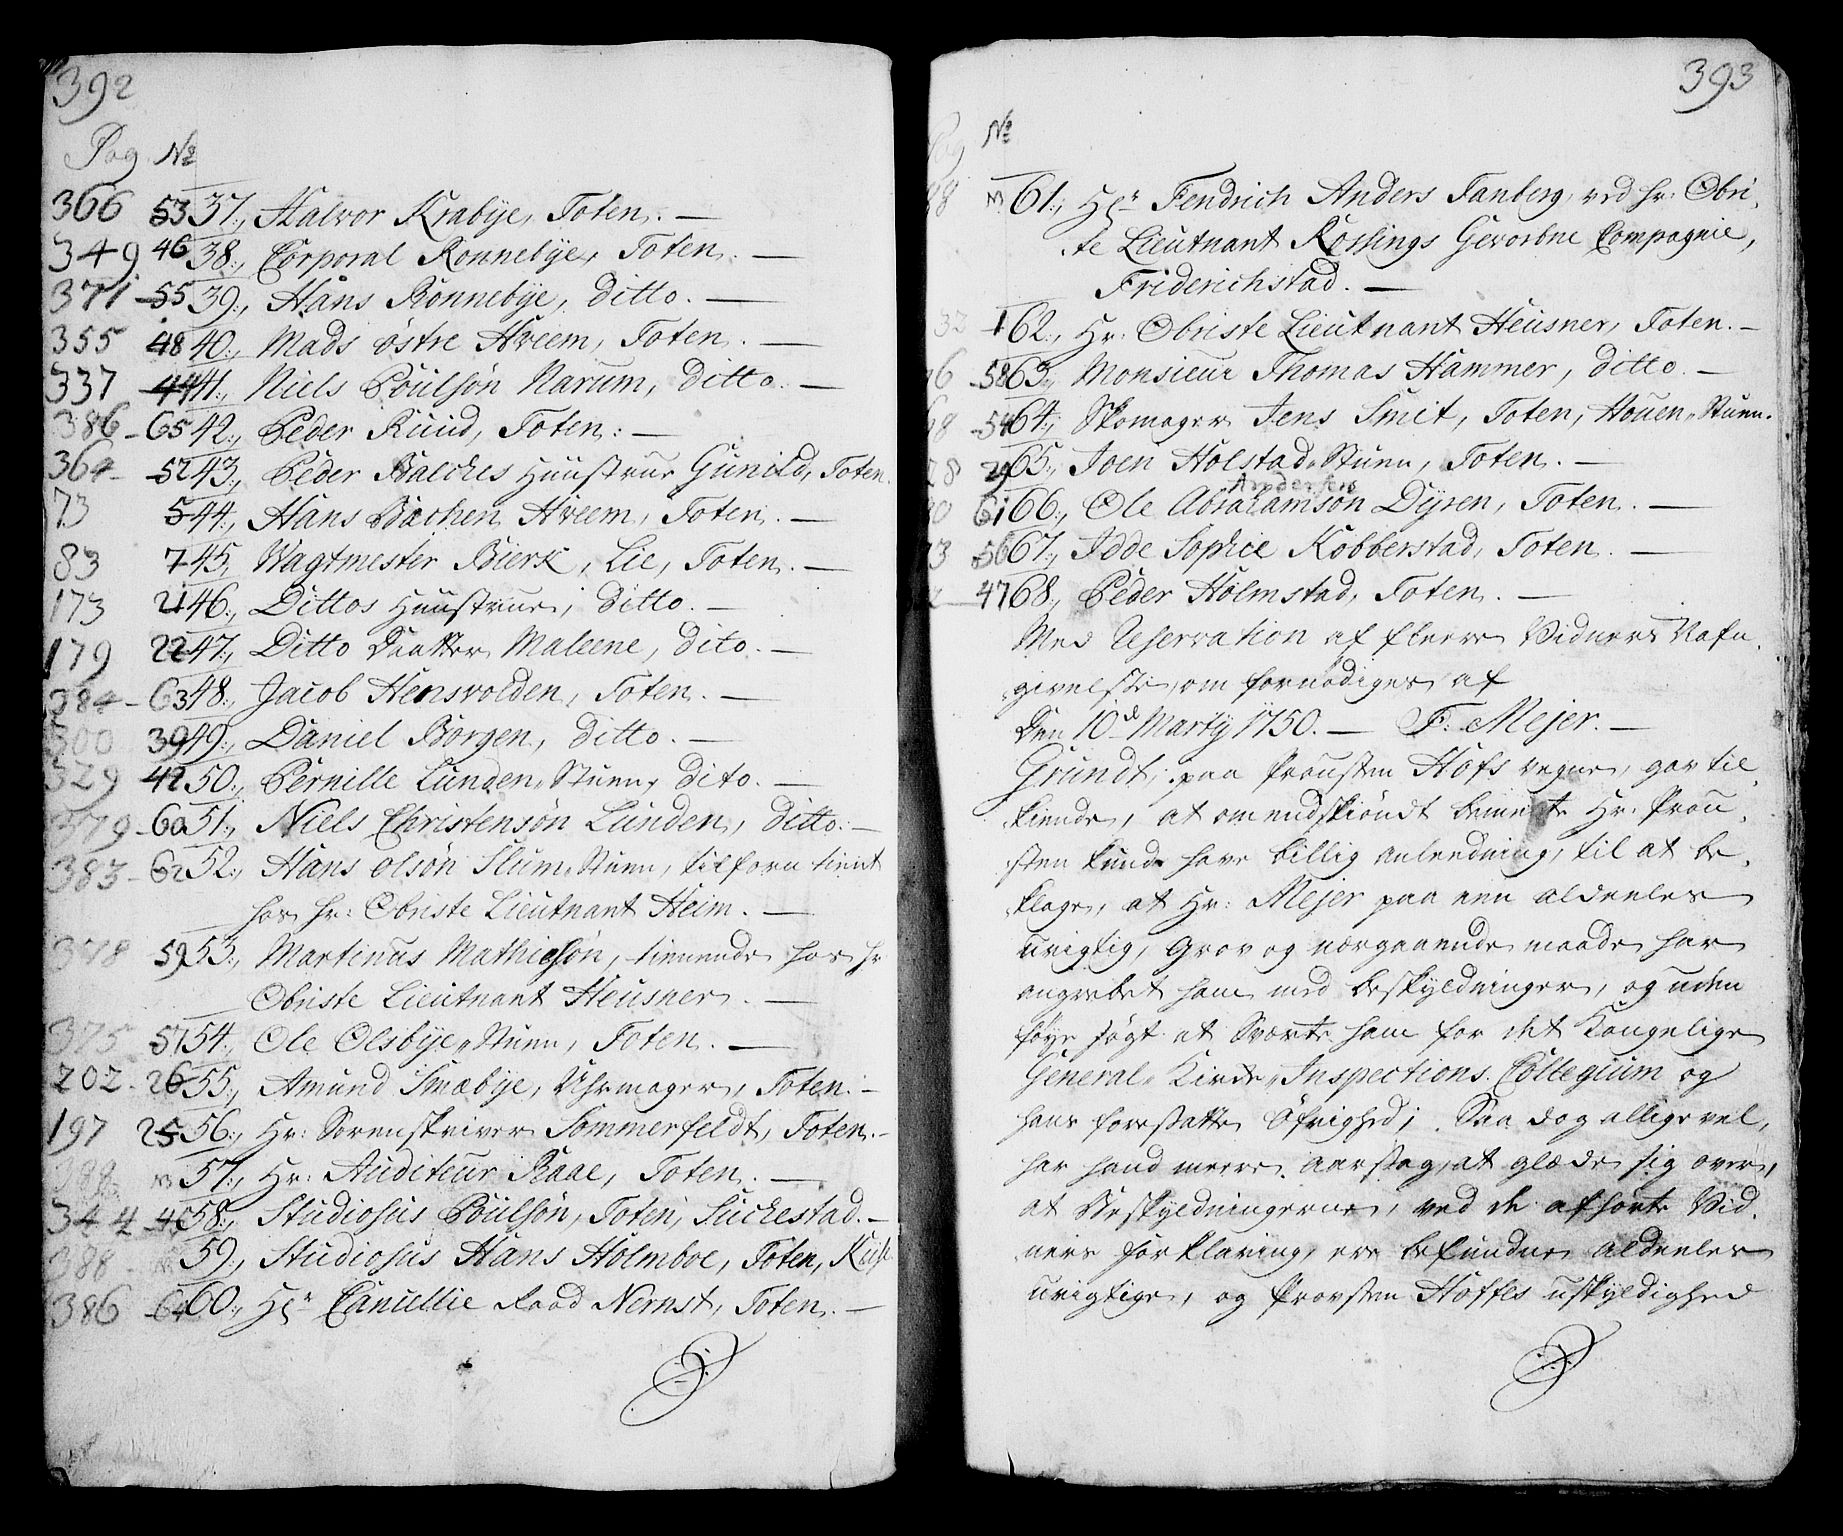 392
Pag No
366 53 37., Halvor Krabÿe, Toten. —
349 46 38., Corporal Ronnebÿe, Toten. —
371 - 55 39., Hans Ronnebÿe, Ditto. —
355 48 40., Mads östre Hveem, Toten. —
337 44 41., Niels Poulsøn Narum, Ditto. —
386 - 65 42., Peder Ruud, Toten: —
364 - 52 43., Peder Balches Huustrue Gunild, Toten.
73 5 44., Hans Bachen Hveem, Toten. —
83 7 45., Wagtmester Bierk, Lie, Toten. —
173 21 46., Dittos Huustrue, ditto. —
179 22 47., Ditto Daatter Maleene, dito. —
384 - 63 48., Jacob Hensvolden, Toten. —
300 39 49., Daniel Borgen, Ditto. —
329 42 50., Pernille Lunden Stuen, dito. —
379 - 60 51., Niels Christensøn Lunden, Ditto: —
383 - 62 52., Hans olsøn Slum Stuen, tilforn tient
hos hr: Obriste Lieutnant Heim. —
378 59 53., Martinus Mathiesøn, tienende hos hr
Obriste Lieutnant Heusner. —
375 57 54., Ole Olsbÿe Stuen, Toten. —
202 - 26 55., Amund Smæbÿe, Uhrmager, Toten: —
197 25 56., Hr: Sorenskriver Sommerfeldt, Toten. —
388 57., Hr: Auditeur Baae, Toten. —
344 - 45 58., Studiosus Poulsøn, Toten, Suckestad. —
388 - 59., Studiosus Hans Holmboe, Toten,
386 - 64 60., Hr Cancellie Raad Nernst, Toten. —
393
No
61., Hr Fendrich Anders Fanberg, ved hr: Obri,
ste Lieutnant Rossings Gevorbne Compagnie,
Friderichstad. —
32 1 62., Hr: Obriste Lieutnant Heusner, Toten. —
58 63., Monsieur Thomas Hammer, ditto. —
54 64., Skomager Jens Smit, Toten, Houen Stuen.
29 65., Joen Holstad Stuen, Toten. —
Andersen
61 66., Ole Abrahamsøn Dyren, Toten. —
56 67., Idde Sophie Kobberstad, Toten. —
47 68., Peder Holmstad, Toten. —
Med Reservation af fleere Vidners Nafn,
givelse, om fornødiges af
Den 10d Martÿ 1750. — F: Mejer. —
Grundt, paa Prousten Hofs vegne, gav til,
kiende, at omendskiøndt bemelte Hr: Prou,
sten kunde have billig anleedning, til at be,
klage, at Hr: Mejer paa een aldeeles
urigtig, Grov og nærgaaende maade har
angrebet ham med beskyldninger, og uden
føye søgt at Sværte ham for det Kongelige
General Kirke Inspections Collegium og
hans foresatte Øfrighed; Saa dog allige vel,
har hand meere aarsag, at glæde sig over,
at Beskyldningerne, ved de afhørte Vid,
ners forklaring, ere befundne aldeeles
urigtige, og Provsten Hoffes uskyldighed